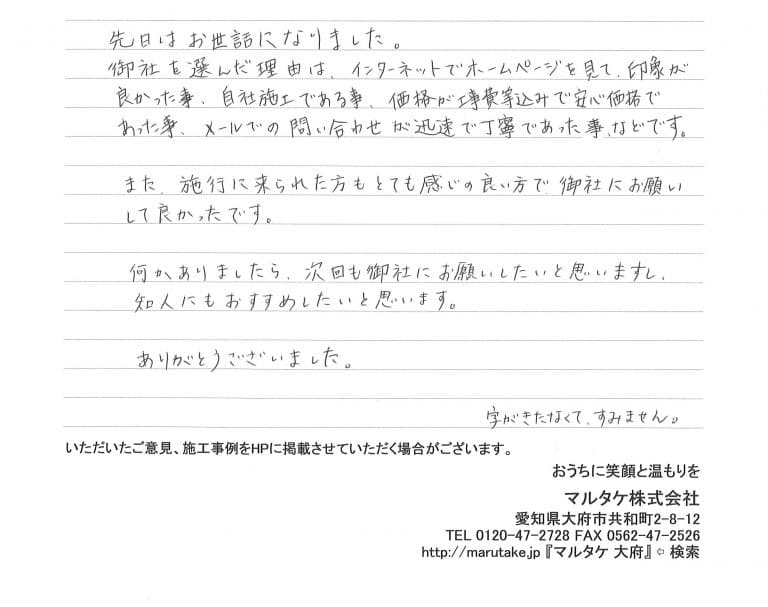 先日はお世話になりました。
御社を選んだ理由は、インターネットでホームページを見て、印象が
良かった事、自社施工である事、価格が工事費等込みで安心価格で
あった事、メールでの問い合わせが迅速で丁寧であった事、などです。
また、施行に来られた方もとても感じの良い方で、御社にお願い
して良かったです。
何かありましたら、次回も御社にお願いしたいと思いますし、
知人にもおすすめしたいと思います。
ありがとうございました。
字がきたなくて、すみません。
いただいたご意見、施工事例をHPに掲載させていただく場合がございます。
おうちに笑顔と温もりを
マルタケ株式会社
愛知県大府市共和町2-8-12
TEL 0120-47-2728 FAX 0562-47-2526
http://marutake.jp『マルタケ 大府』⇦ 検索